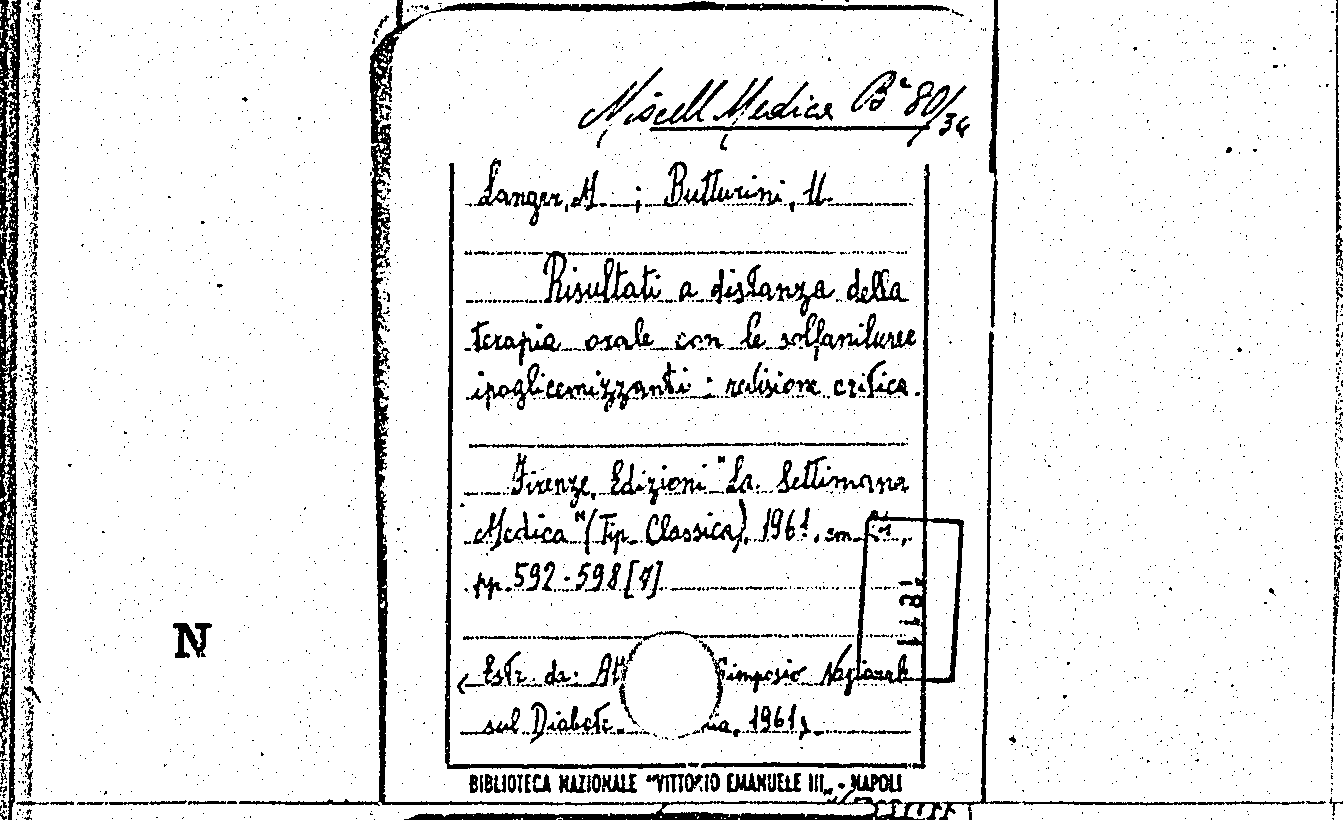 Miscell Medica Bª 80/34
Langer, M. ; Butturini, U.
Risultati a distanza della
terapia orale con le solfaniluree
ipoglicemizzanti : revisione critica.
Firenze, Edizioni "La Settimana
Medica" (Tip. Classica), 1961, cm.
pp. 592-598 [7]
Estr. da: Simposio Nazionale
sul Diabete. 1961).
N
BIBLIOTECA NAZIONALE "VITTORIO EMANUELE III„ - NAPOLI